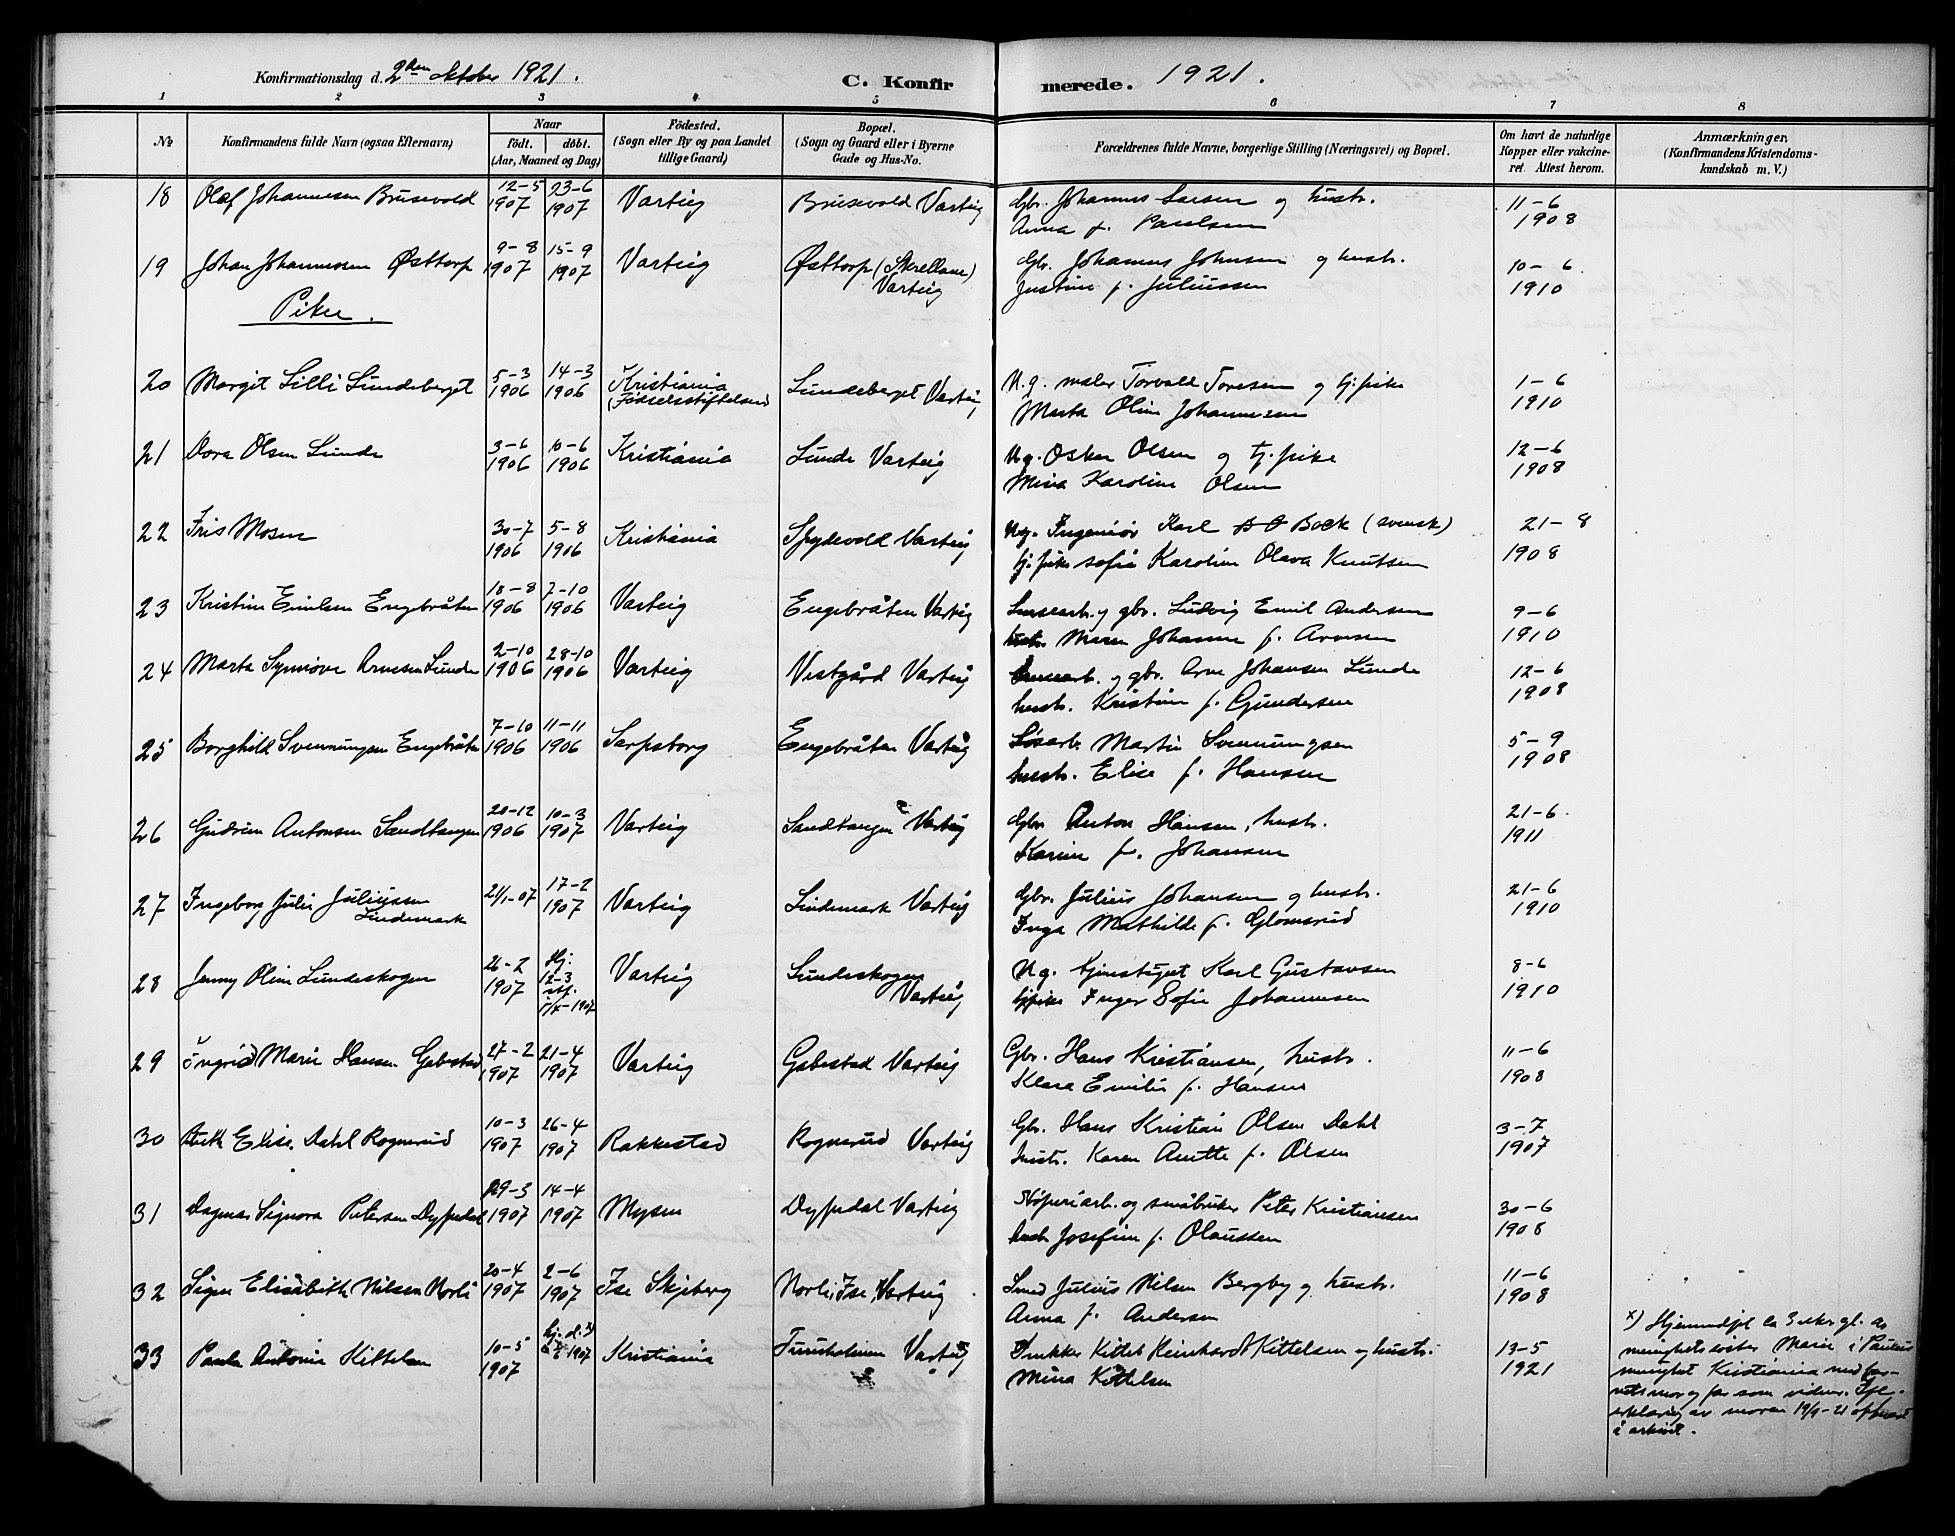 Konfirmationsdag d. 2den oktober 1921.
C. Konfirmerede. 1921.
1 2 3 4 5 6 7 8
No
Konfirmandens fulde Navn (ogsaa Efternavn)
Naar
født. døbt.
(Aar, Maaned og Dag)
Fødested.
(Sogn eller By og paa Landet
tillige Gaard)
Bopæl.
(Sogn og Gaard eller i Byerne
Gade og Hus-No.
Forældrenes fulde Navne, borgerlige Stilling (Næringsvei) og Bopæl.
Om havt de naturlige
Kopper eller vakcine-
ret. Attest herom.
Anmærkninger,
(Konfirmandens Kristendoms-
kundskab m. V.)
18 Olaf Johannesen Brusevold 12-5 1907 23-6 1907 Varteig Brusevold Varteig Gbr. Johannes Larsen og hustr.
Anna f. Paulsen 11-6 1908
19 Johan Johannessen Østtorp 9-8 1907 15-9 1907 Varteig Østtorp (Skrellane) Varteig Gbr. Johannes Johnsen og hustr.
Justine f. Juliussen 10-6 1910
Piker.
20 Margit Lilli Lundeberget 5-3 1906 14-3 1906 Kristiania (Fødselsstiftelsen) Lundeberget Varteig U.g. maler Torvald Toresen og tj.pike
Marta Oline Johannesen 1-6 1910
21 Dora Olsen Lunde 3-6 1906 10-6 1906 Kristiania Lunde Varteig Ug. Oskar Olsen og tj.pike
Mina Karoline Olsen 12-6 1908
22 Iris Mosen 30-7 1906 5-8 1906 Kristiania Spydevold Varteig Ug. Ingeniør Karl Bock (svensk)
tj.pike Sofie Karoline Olava Knutsen 21-8 1908
23 Kristine Emilsen Engebråten 18-8 1906 7-10 1906 Varteig Engebråten Varteig Lensearb. og gbr. Ludvig Emil Andersen
hustr. Maren Johanne f. Arnesen 9-6 1910
24 Marta Synnøve Arnesen Lunde 2-10 1906 28-10 1906 Varteig Vestgård Varteig Lensearb. og gbr. Arne Johansen Lunde
hustr. Kristine f. Gundersen 12-6 1908
25 Borghild Svenningsen Engebråten 7-10 1906 11-11 1906 Sarpsborg Engebråten Varteig Løsarb. Martin Svenningsen
hustr. Elise f. Hansen 5-9 1908
26 Gudrun Antonsen Sandtangen 20-12 1906 10-3 1907 Varteig Sandtangen Varteig Gbr. Anton Hansen, hustr.
Karine f. Johansen 21-6 1911
27 Ingeborg Julie Juliussen Lindemark 21/1-07 17-2 1907 Varteig Lindemark Varteig Gbr. Julius Johansen og hustr.
Inga Mathilde f. Glomsrud 21-6 1910
28 Jenny Oline Lundeskogen 26-2 1907 Hj: 12-3 stf. 1907 Varteig Lundeskogen Varteig U.g. Karl Gustavsen
tjpike Inger Sofie Johannesen 8-6 1910
29 Ingrid Marie Hansen Gabestad 27-2 1907 21-4 1907 Varteig Gabestad Varteig Gbr. Hans Kristiansen, hustr.
Klara Emilie f. Hansen 11-6 1908
30 Elise Dahl Rognerud 10-3 1907 26-4 1907 Rakkestad Rognerud Varteig Gbr. Hans Kristian Olsen Dahl
hustr. Karen Anette f. Olsen 3-7 1907
31 Dagmar Signora Petersen Dypedal 29-3 1907 14-4 1907 Mysen Dypedal Varteig Støperiarb. og småbruker Peter Kristiansen
hustr. Josefine f. Olaussen 30-6 1908
32 Signe Elisabeth Nilsen Norli 20-4 1907 2-6 1907 Ise Skjeberg Norli, Ise, Varteig Smed Julius Nilsen Bergby og hustr.
Anna f. Andersen 11-6 1908
33 Paula Antonie Kittelsen 10-5 1907 hj. d. x) 1907 Kristiania Furuholmen Varteig Trukker Kittel Reinhardt Kittelsen og hustr.
Mina Kittelsen 13-5 1921
x) Hjemmedøpt av
menighetssøster Marie i Paulus
menighet Kristiania med bar-
nets mor og far som vidner.
erklæring av moren 19/9-21
i arkivet.